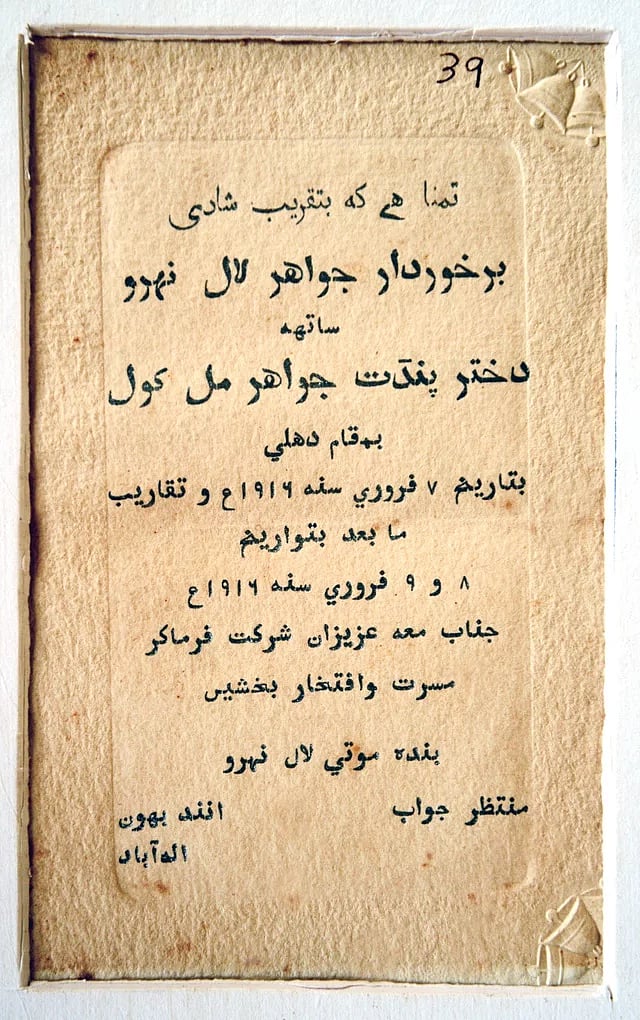 39
تمنا هے کہ بتقریب شادی
برخوردار جواهر لال نهرو
ساتهہ
دختر پنڈت جواهر مل کول
بمقام دهلي
بتاریخ ۷ فروري سنہ ۱۹۱۶ع و تقاریب
ما بعد بتواریخ
۸ و ۹ فروري سنہ ۱۹۱۶ع
جناب معہ عزیزان شرکت فرماکر
مسرت وافتخار بخشیں
بندہ موتي لال نهرو
منتظر جواب
انند بهون
الہ‌آباد